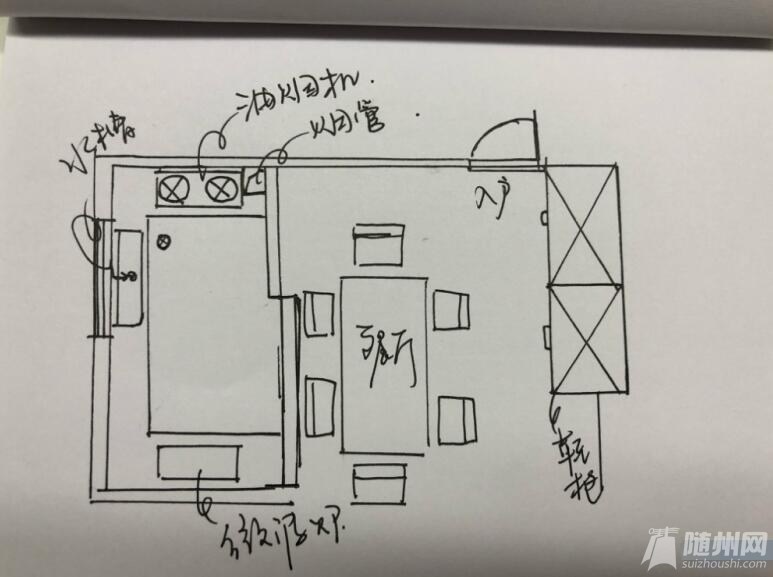 油烟机.
烟管
水槽
入户
餐厅
鞋柜
随州网
suizhoushi.com